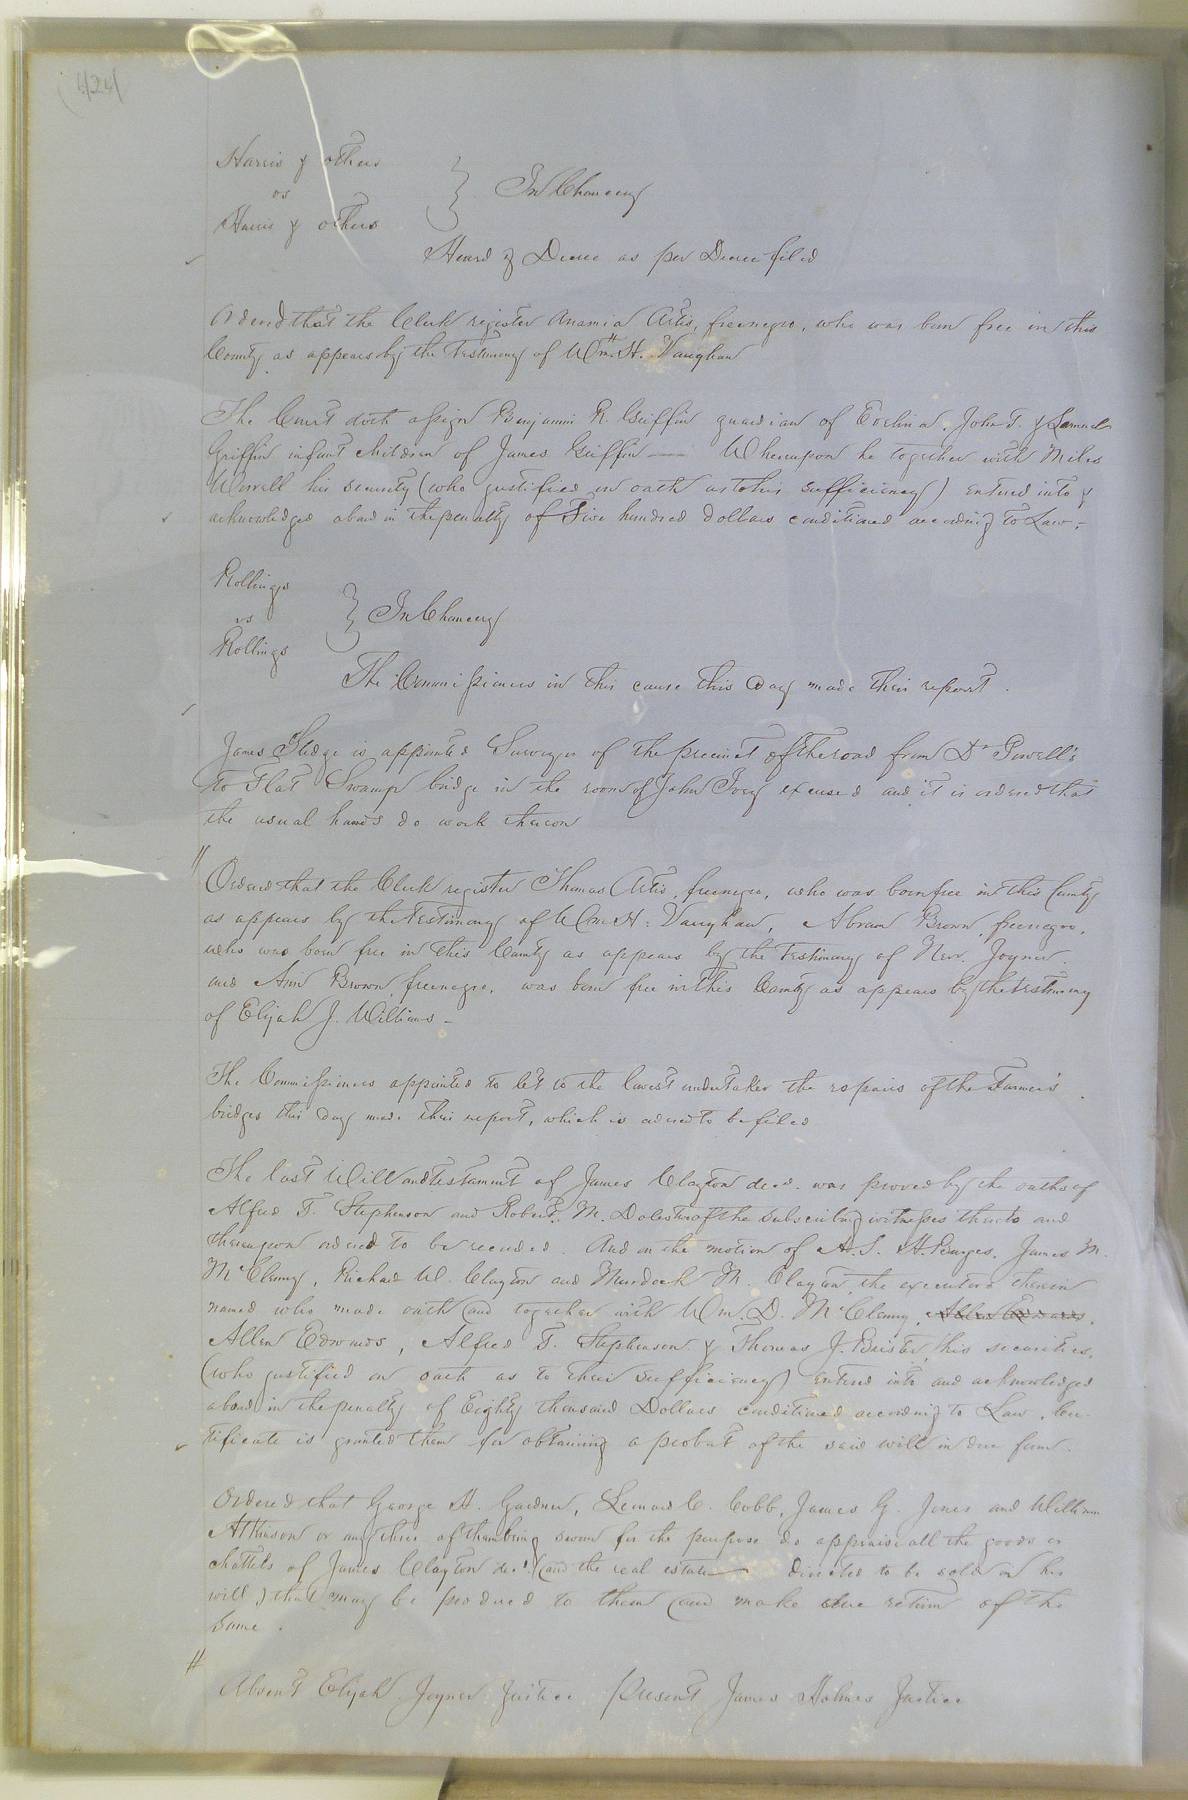 424
Harris & others
vs } In Chancery
Harris & others
Heard & Decree as per Decree filed
Ordered that the Clerk register Anamia Artis, freenegro, who was born free in this
County as appears by the Testimony of Wm. H. Vaughan
The Court doth assign Benjamin R. Griffin guardian of Evelina, John T. & Samuel
Griffin infant children of James Griffin — Whereupon he together with Miles
Worrell his security (who justified on oath as to his sufficiency) entered into &
acknowledged a bond in the penalty of Five hundred dollars conditioned according to Law.–
Rollings
vs } In Chancery
Rollings
The Commissioners in this cause this Day made their report.
James Sledge is appointed Surveyor of the precinct of the road from Dr Powell's
to Flat Swamp bridge in the room of John Ivey excused and it is ordered that
the usual hands do work thereon
Ordered that the Clerk register Thomas Artis, freenegro, who was born free in this County
as appears by the Testimony of Wm. H. Vaughan, Abram Brown, freenegro,
who was born free in this County as appears by the Testimony of Joyner.
and Ann Brown freenegro, was born free in this County as appears by the testimony
of Elijah J. Williams –
The Commissioners appointed to let to the lowest undertaker the repairs of the Farmer's
bridges this Day made their report, which is ordered to be filed
The last Will and testament of James Clayton decd. was proved by the oaths of
Alfred T. Stephenson and Robert M. of the subscribing witnesses thereto and
thereupon ordered to be recorded. And on the motion of A. S. H. Burges, James M.
McClenny, Richard W. Clayton and Murdock M. Clayton, the executors therein
named who made oath and together with Wm. D. McClenny, Allen Edwards,
Allen Edwards, Alfred T. Stephenson & Thomas J. Brister, his securities,
(who justified on oath as to their sufficiency) entered into and acknowledged
a bond in the penalty of Eighty thousand Dollars conditioned according to Law. Cer-
tificate is granted them for obtaining a probat of the said will in due form.
Ordered that George H. Gardner, Lemuel C. Cobb, James G. Jones and William
Atkinson or any three of them being sworn for the purpose do appraise all the goods or
chattels of James Clayton decd. (and the real estate directed to be sold in his
will) that may be produced to them and make due return of the
same.
Absent Elijah Joyner Justice Present James Holmes Justice